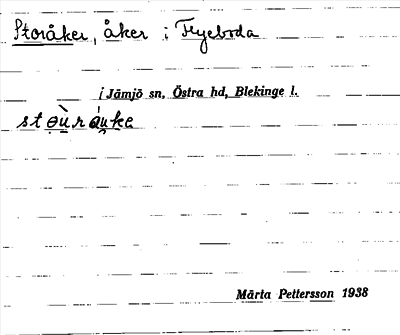 Storåker, åker i Flyeboda
i Jämjö sn, Östra hd, Blekinge l.
Märta Pettersson 1938